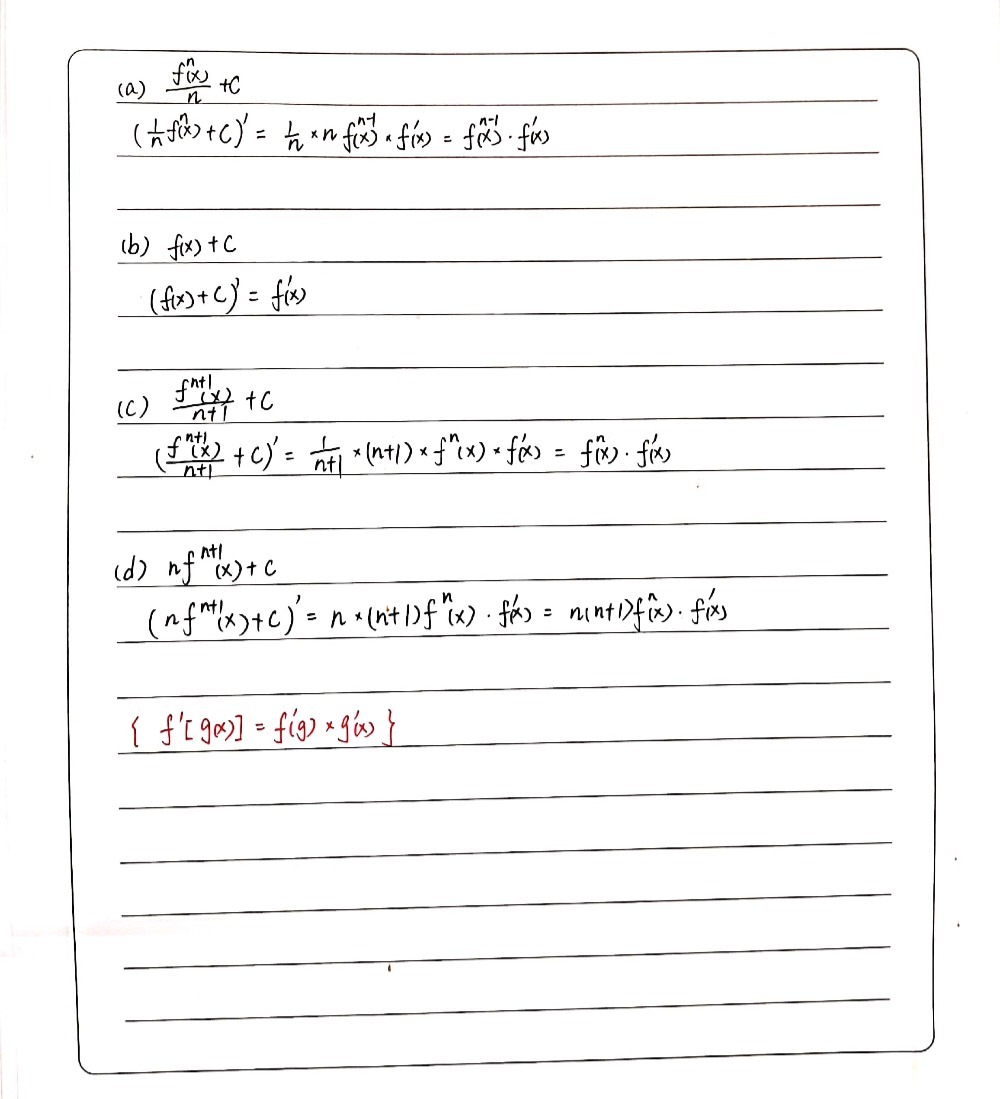 (a) \frac{f^n(x)}{n} + C
(\frac{1}{n} f^n(x) + C)' = \frac{1}{n} × n f^{n-1}(x) × f'(x) = f^{n-1}(x) · f'(x)
(b) f(x) + C
(f(x) + C)' = f'(x)
(c) \frac{f^{n+1}(x)}{n+1} + C
(\frac{f^{n+1}(x)}{n+1} + C)' = \frac{1}{n+1} × (n+1) × f^n(x) × f'(x) = f^n(x) · f'(x)
(d) n f^{n+1}(x) + C
(n f^{n+1}(x) + C)' = n × (n+1) f^n(x) · f'(x) = n(n+1) f^n(x) · f'(x)
{ f'[g(x)] = f'(g) × g'(x) }